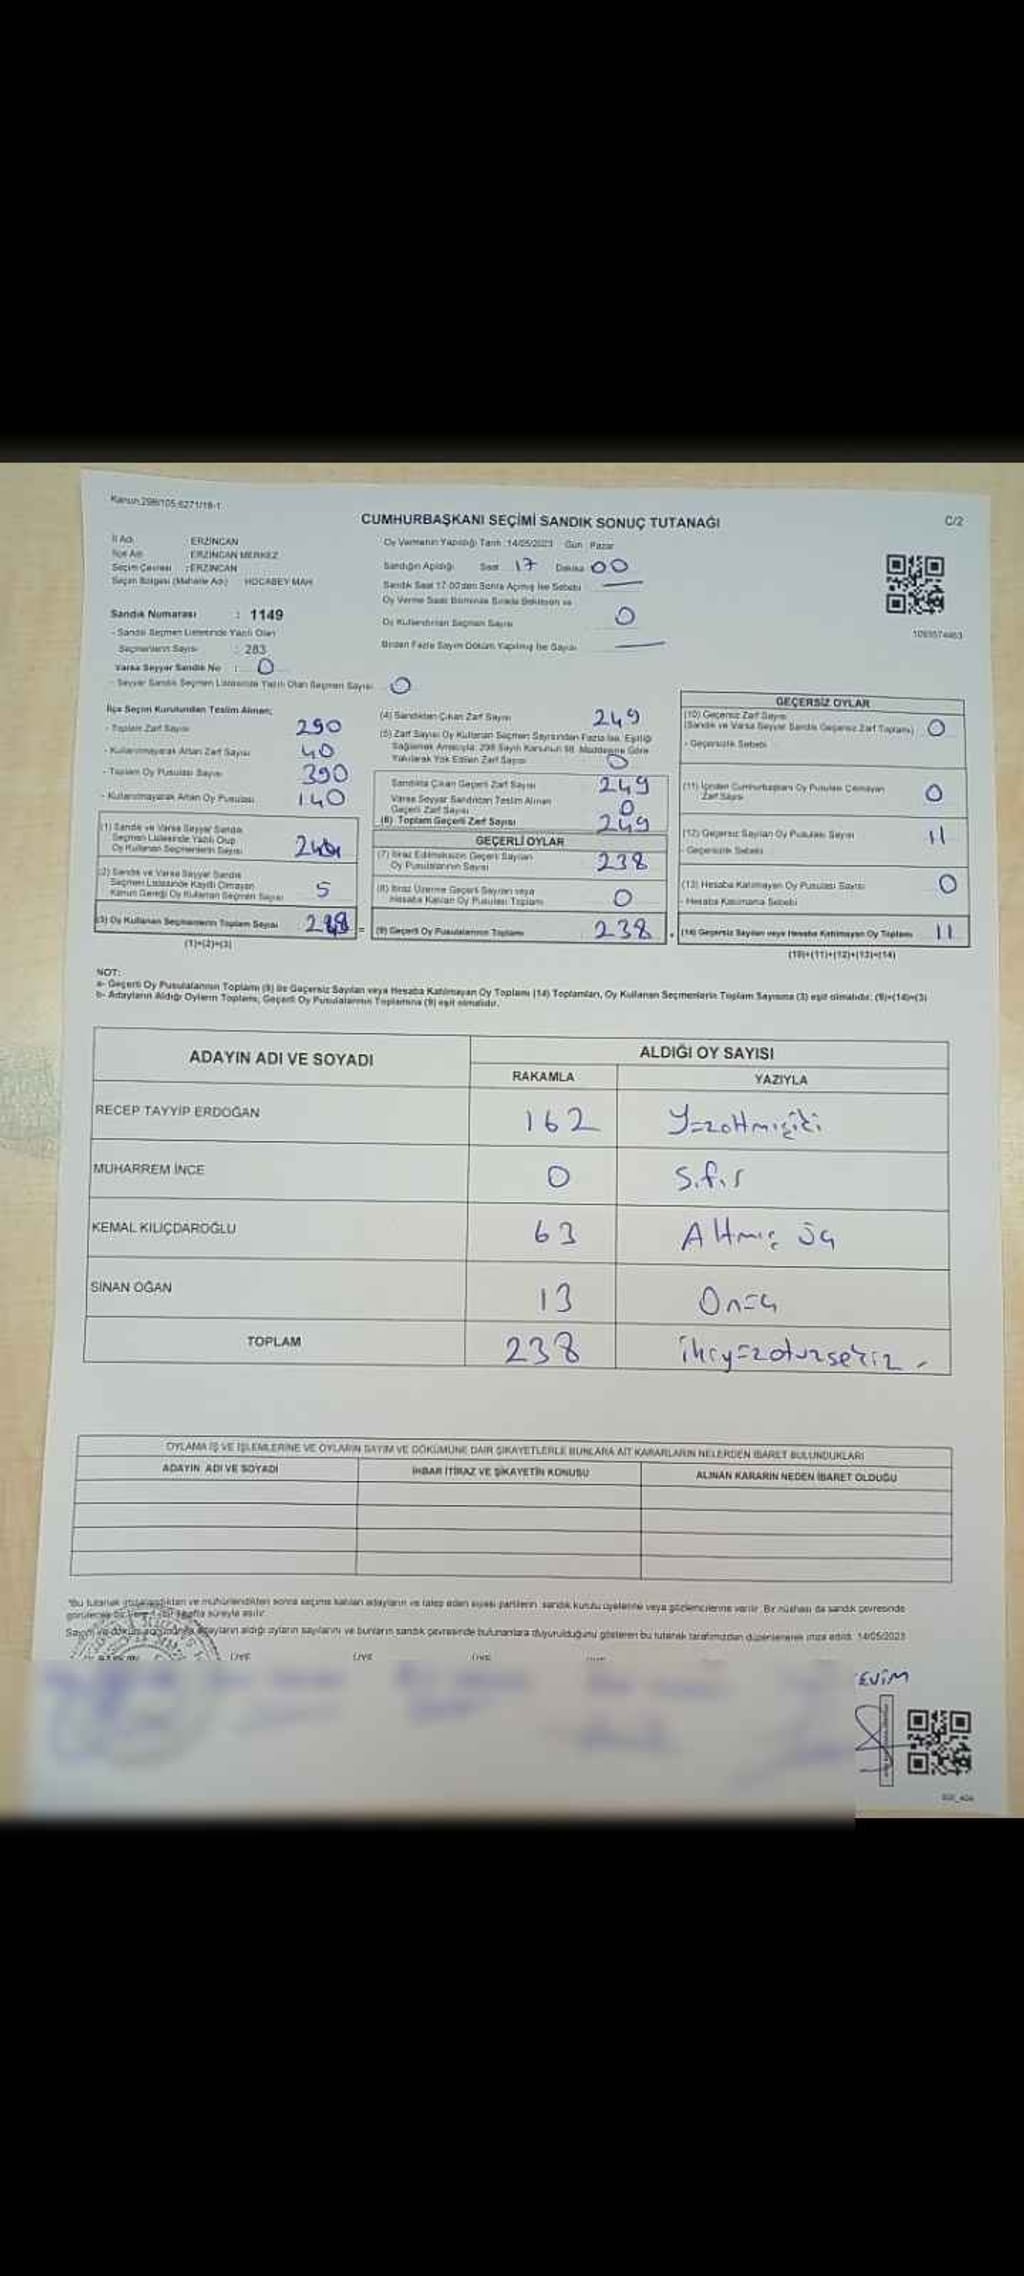 Kanun:298/105,6271/18-1
C/2
CUMHURBAŞKANI SEÇİMİ SANDIK SONUÇ TUTANAĞI
İl Adı : ERZİNCAN
İlçe Adı : ERZİNCAN MERKEZ
Seçim Çevresi : ERZİNCAN
Seçim Bölgesi (Mahalle Adı) : HOCABEY MAH
Sandık Numarası : 1149
- Sandık Seçmen Listesinde Yazılı Olan
Seçmenlerin Sayısı : 283
Varsa Seyyar Sandık No : 0
- Seyyar Sandık Seçmen Listesinde Yazılı Olan Seçmen Sayısı 0
Oy Vermenin Yapıldığı Tarih : 14/05/2023 Gün : Pazar
Sandığın Açıldığı Saat 17 Dakika 00
Sandık Saat 17:00'den Sonra Açılmış İse Sebebi
Oy Verme Saati Bitiminde Sırada Bekleyen ve
Oy Kullandırılan Seçmen Sayısı 0
Birden Fazla Sayım Döküm Yapılmış İse Sayısı
1093574463
İlçe Seçim Kurulundan Teslim Alınan;
- Toplam Zarf Sayısı 290
- Kullanılmayarak Artan Zarf Sayısı 40
- Toplam Oy Pusulası Sayısı 390
- Kullanılmayarak Artan Oy Pusulası 140
(1) Sandık ve Varsa Seyyar Sandık
Seçmen Listesinde Yazılı Olup
Oy Kullanan Seçmenlerin Sayısı
(2) Sandık ve Varsa Seyyar Sandık
Seçmen Listesinde Kayıtlı Olmayan
Kanun Gereği Oy Kullanan Seçmen Sayısı 5
(3) Oy Kullanan Seçmenlerin Toplam Sayısı
(1)+(2)=(3)
(4) Sandıktan Çıkan Zarf Sayısı 249
(5) Zarf Sayısı Oy Kullanan Seçmen Sayısından Fazla İse, Eşitliği
Sağlamak Amacıyla, 298 Sayılı Kanunun 98. Maddesine Göre
Yakılarak Yok Edilen Zarf Sayısı 0
Sandıkta Çıkan Geçerli Zarf Sayısı 249
Varsa Seyyar Sandıktan Teslim Alınan
Geçerli Zarf Sayısı 0
(6) Toplam Geçerli Zarf Sayısı 249
GEÇERLİ OYLAR
(7) İtiraz Edilmeksizin Geçerli Sayılan
Oy Pusulalarının Sayısı 238
(8) İtiraz Üzerine Geçerli Sayılan veya
Hesaba Katılan Oy Pusulası Toplam 0
= (9) Geçerli Oy Pusulalarının Toplamı 238
GEÇERSİZ OYLAR
(10) Geçersiz Zarf Sayısı
(Sandık ve Varsa Seyyar Sandık Geçersiz Zarf Toplamı) 0
- Geçersizlik Sebebi
(11) İçinden Cumhurbaşkanı Oy Pusulası Çıkmayan
Zarf Sayısı 0
(12) Geçersiz Sayılan Oy Pusulası Sayısı 11
- Geçersizlik Sebebi
(13) Hesaba Katılmayan Oy Pusulası Sayısı 0
- Hesaba Katılmama Sebebi
(14) Geçersiz Sayılan veya Hesaba Katılmayan Oy Toplamı 11
(10)+(11)+(12)+(13)=(14)
NOT:
a- Geçerli Oy Pusulalarının Toplamı (9) ile Geçersiz Sayılan veya Hesaba Katılmayan Oy Toplamı (14) Toplamları, Oy Kullanan Seçmenlerin Toplam Sayısına (3) eşit olmalıdır. (9)+(14)=(3)
b- Adayların Aldığı Oyların Toplamı, Geçerli Oy Pusulalarının Toplamına (9) eşit olmalıdır.
ADAYIN ADI VE SOYADI
ALDIĞI OY SAYISI
RAKAMLA YAZIYLA
RECEP TAYYİP ERDOĞAN 162 Yüzaltmışiki
MUHARREM İNCE 0 Sıfır
KEMAL KILIÇDAROĞLU 63 Altmış üç
SİNAN OĞAN 13 Onüç
TOPLAM 238 ikiyüzotuzsekiz
OYLAMA İŞ VE İŞLEMLERİNE VE OYLARIN SAYIM VE DÖKÜMÜNE DAİR ŞİKAYETLERLE BUNLARA AİT KARARLARIN NELERDEN İBARET BULUNDUKLARI
ADAYIN ADI VE SOYADI
İHBAR İTİRAZ VE ŞİKAYETİN KONUSU
ALINAN KARARIN NEDEN İBARET OLDUĞU
*Bu tutanak imzalandıktan ve mühürlendikten sonra seçime katılan adayların ve talep eden siyasi partilerin sandık kurulu üyelerine veya gözlemcilerine verilir. Bir nüshası da sandık çevresinde
görülecek bir yere 1 bir hafta süreyle asılır.
Sayım ve döküm sonunda adayların aldığı oyların sayılarını ve bunların sandık çevresinde bulunanlara duyurulduğunu gösteren bu tutanak tarafımızdan düzenlenerek imza edildi. 14/05/2023
ÜYE ÜYE ÜYE
EVİM